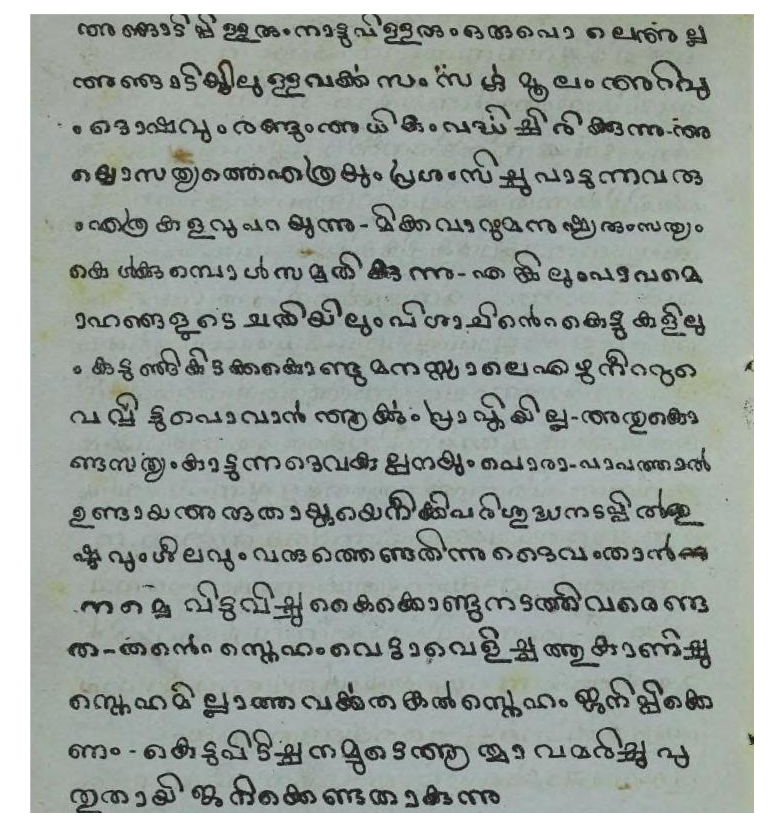 അങ്ങാടിപ്പിള്ളരും നാട്ടുപിള്ളരും ഒരുപൊ ലെഅല്ല
അങ്ങാടിയിലുള്ളവൎക്ക സംസൎഗ്ഗ മൂലം അറിവു
ം ദൊഷവും രണ്ടും അധികം വൎദ്ധിച്ചിരിക്കുന്നു-അ
യ്യൊസത്യത്തെഎത്രയും പ്രശംസിച്ചു പാടുന്നവരു
ം എത്ര കളവു പറയുന്നു- മിക്കവാറുമനുഷ്യരുംസത്യം
കെൾക്കുമ്പൊൾ സമ്മതിക്കുന്നു- എങ്കിലും പാപമൊ
ാഹങ്ങളുടെ ചതിയിലും പിശാചിൻെറ കെട്ടുകളിലു
ം കുടുങ്ങികിടക്കകൊണ്ടു മനസ്സാലെ എഴുനീററുവെ
വൎപ്പിട്ടുപൊവാൻ ആൎക്കും പ്രാപ്തിയില്ല-അതുകൊ
ണ്ടസത്യം കാട്ടുന്ന ദൈവകല്പനയും പൊരാ-പാപത്താൽ
ഉണ്ടായ അരുതായ്മയെനീക്കി പരിശുദ്ധനടപ്പിൽ ഇ
ഷ്ടവുംശീലവും വരുത്തെണ്ടതിന്നു ദൈവം താൻ
നമ്മെ വിട്ടുവിച്ചു കൈക്കൊണ്ടു നടത്തിവരെണ്ട
ത-തൻെറ സ്നെഹം വെട്ടാവെളിച്ചആകാണിച്ചു
സ്നെഹമില്ലാത്തവൎക്ക തങ്കൽ സ്നെഹം ജനിപ്പിക്കെ
ണം- കെട്ടുപിടിച്ച നമ്മുടെ ആത്മാവമരിച്ചു പു
തുതായി ജനിക്കെണ്ടതാകുന്നു